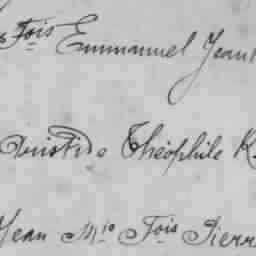 Fois Emmanuel Jean
Aristide Théophile K
Jean Mie Fois Pierr